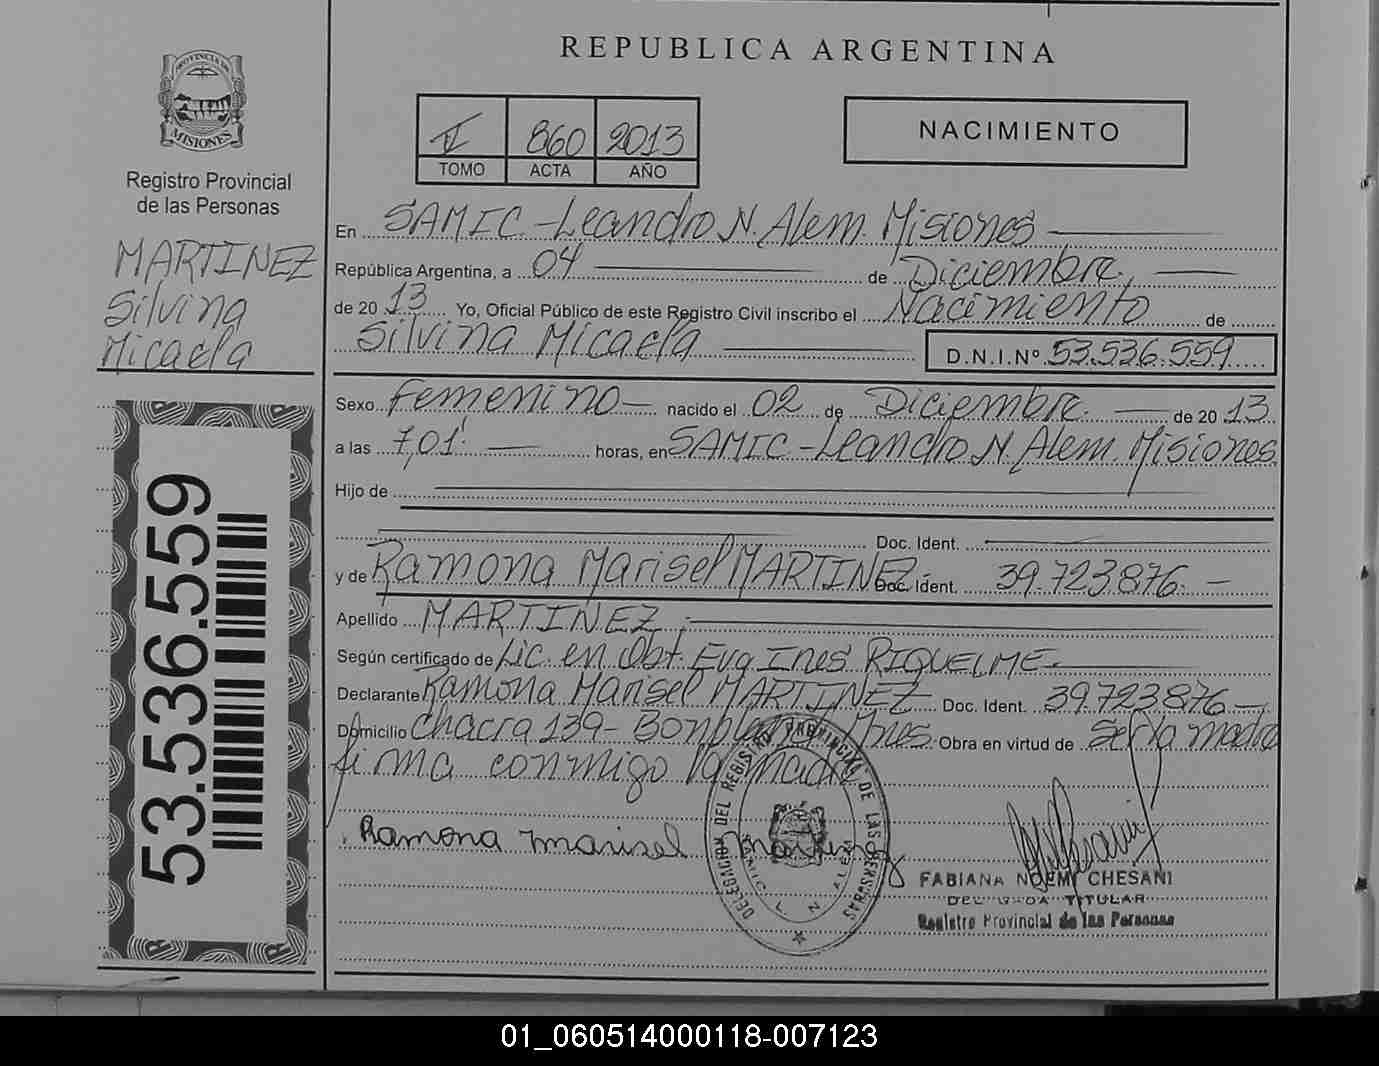 REPUBLICA ARGENTINA
PROVINCIA DE
MISIONES
Registro Provincial
de las Personas
MARTINEZ
Silvina
Micaela
53.536.559
II 860 2013
TOMO ACTA AÑO
NACIMIENTO
En SAMIC - Leandro N. Alem. Misiones
República Argentina, a 04 de Diciembre
de 2013 Yo, Oficial Público de este Registro Civil inscribo el Nacimiento de
Silvina Micaela D.N.I.Nº 53.536.559
Sexo Femenino nacido el 02 de Diciembre de 2013
a las 7,01' horas, en SAMIC - Leandro N. Alem. Misiones
Hijo de
Doc. Ident.
y de Ramona Marisel MARTINEZ Doc. Ident. 39.723.876
Apellido MARTINEZ
Según certificado de Lic. en Obst. Eva Ines RIQUELME
Declarante Ramona Marisel MARTINEZ Doc. Ident. 39.723.876
Domicilio Chacra 139 - Bonpland Mnes. Obra en virtud de ser la madre
firma conmigo la madre
Ramona Marisel Martinez
DELEGACION DEL REGISTRO PROVINCIAL DE LAS PERSONAS
SAMIC L. N. ALEM
FABIANA NOEMI CHESANI
DELEGADA TITULAR
Registro Provincial de las Personas
01_060514000118-007123